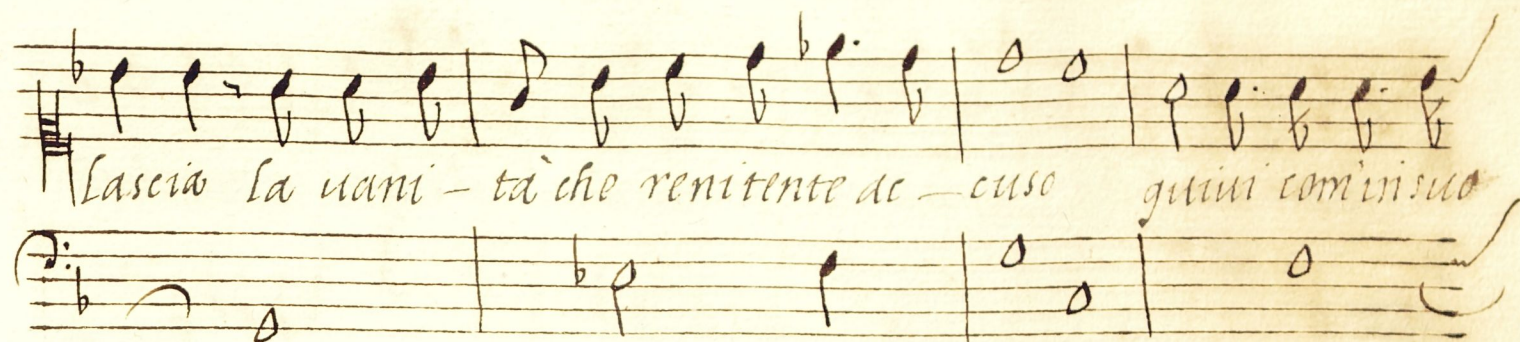 Lascia la uani - tà che renitente ac - cuso quiui com'in suo